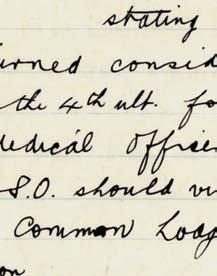 stating
urned consid
the 4th ult. fo
Medical Officer
S.O. should vi
Common Lodg
on